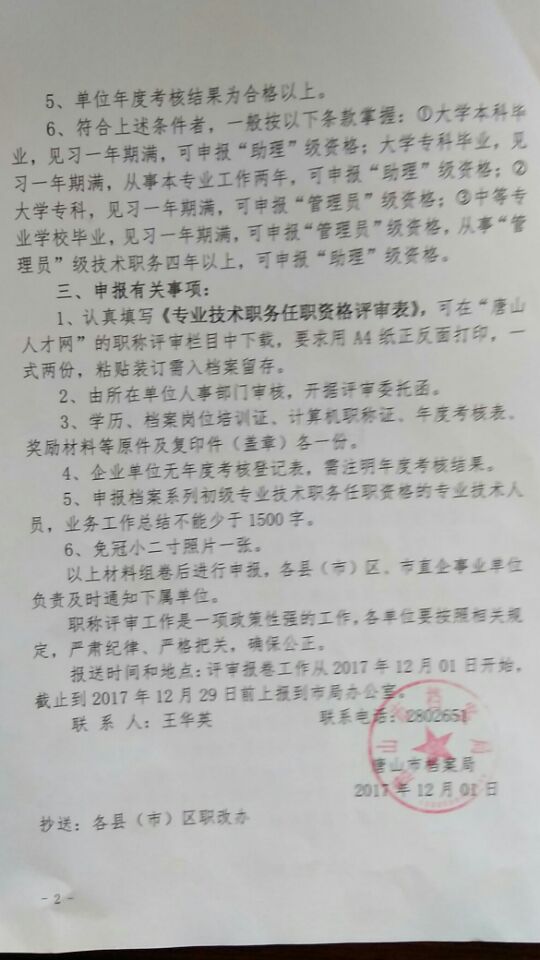 5、单位年度考核结果为合格以上。
6、符合上述条件者，一般按以下条款掌握：①大学本科毕
业，见习一年期满，可申报“助理”级资格；大学专科毕业，见
习一年期满，从事本专业工作两年，可申报“助理”级资格；②
大学专科，见习一年期满，可申报“管理员”级资格；③中等专
业学校毕业，见习一年期满，可申报“管理员”级资格，从事“管
理员”级技术职务四年以上，可申报“助理”级资格。
三、申报有关事项：
1、认真填写《专业技术职务任职资格评审表》，可在“唐山
人才网”的职称评审栏目中下载，要求用 A4 纸正反面打印，一
式两份，粘贴装订需入档案留存。
2、由所在单位人事部门审核，开据评审委托函。
3、学历、档案岗位培训证、计算机职称证、年度考核表、
奖励材料等原件及复印件（盖章）各一份。
4、企业单位无年度考核登记表，需注明年度考核结果。
5、申报档案系列初级专业技术职务任职资格的专业技术人
员，业务工作总结不能少于 1500 字。
6、免冠小二寸照片一张。
以上材料组卷后进行申报，各县（市）区、市直企事业单位
负责及时通知下属单位。
职称评审工作是一项政策性强的工作，各单位要按照相关规
定，严肃纪律、严格把关，确保公正。
报送时间和地点：评审报卷工作从 2017 年 12 月 01 日开始，
截止到 2017 年 12 月 29 日前上报到市局办公室。
联 系 人：王华英 联系电话：2802651
唐山市档案局
2017 年 12 月 01 日
抄送：各县（市）区职改办
- 2 -